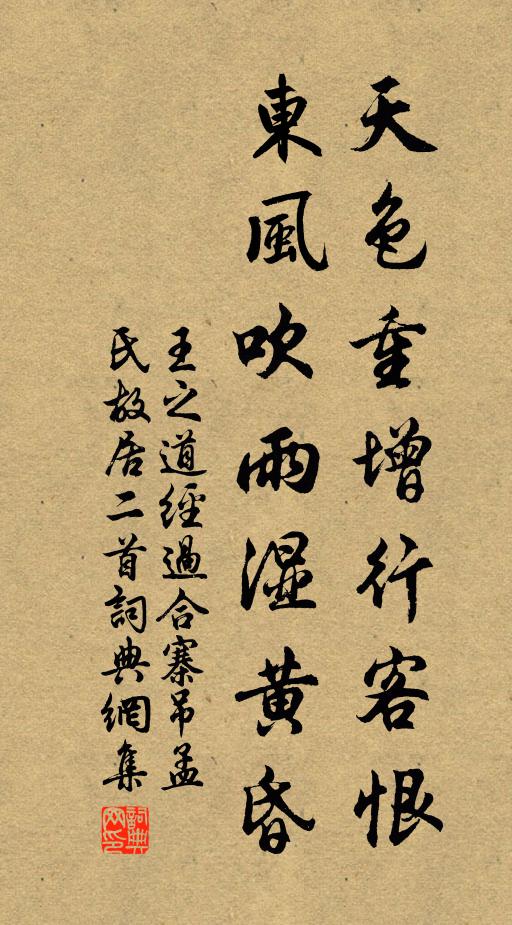 天色重增行客恨
東風吹雨湿黄昏
王之道經過合寨吊孟
氏故居二首詞典網集
詞典
网印